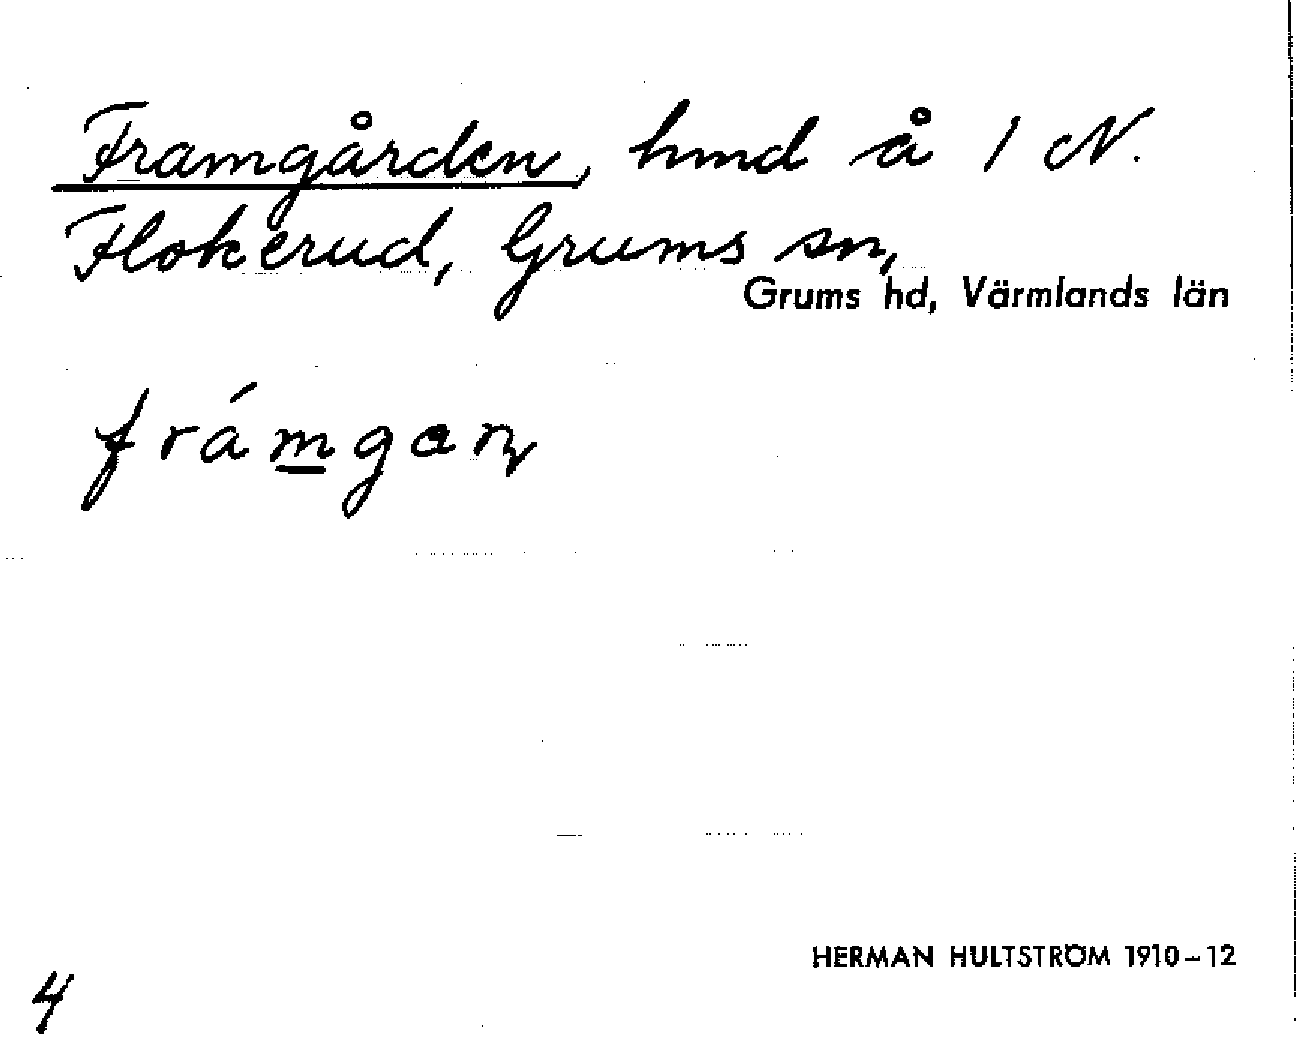 Framgården, hmd å 1 N.
Flokerud, Grums sn,
Grums hd, Värmlands län
frámgaṇ
HERMAN HULTSTRÖM 1910-12
4